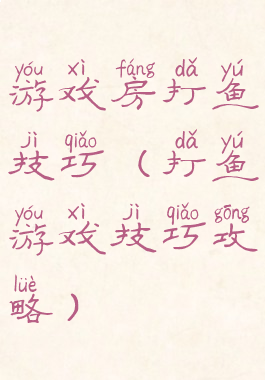 yóu xì fáng dǎ yú
游戏房打鱼
jì qiǎo dǎ yú
技巧（打鱼
yóu xì jì qiǎo gōng
游戏技巧攻
lüè
略）